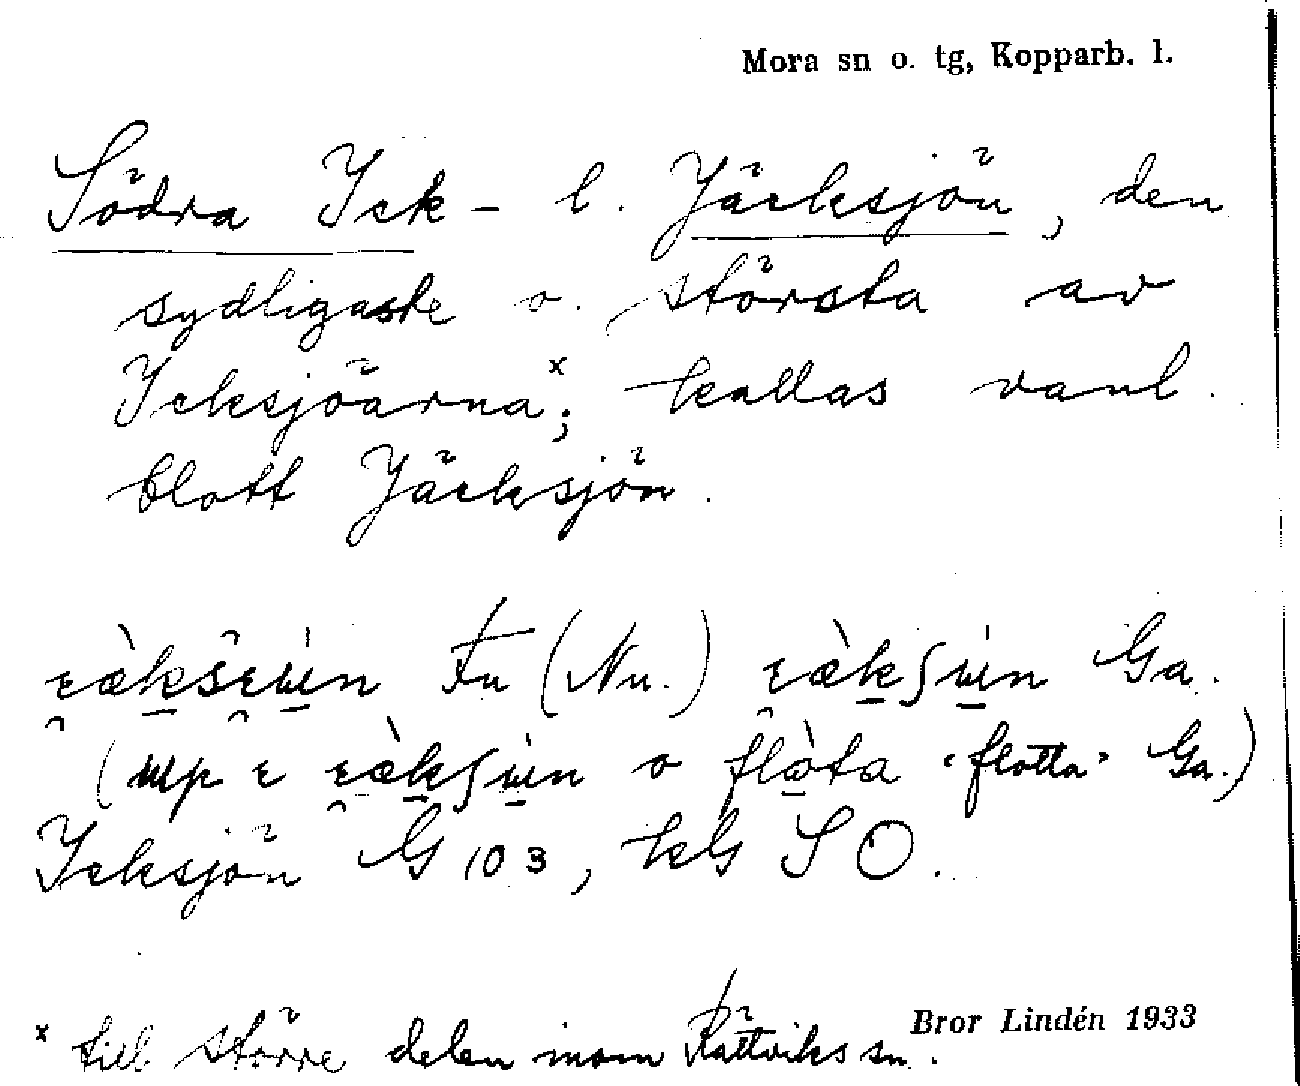 Mora sn o. tg, Kopparb. l.
Södra Ick- l. Jäcksjön, den
sydligaste o. största av
Icksjöarna ˣ; kallas vanl.
blott Jäcksjön.
Fu (Nu.) Ga.
o flòta "flotta" Ga.)
Icksjön G 103, kG SO.
ˣ till större delen inom Rättviks sn.
Bror Lindén 1933